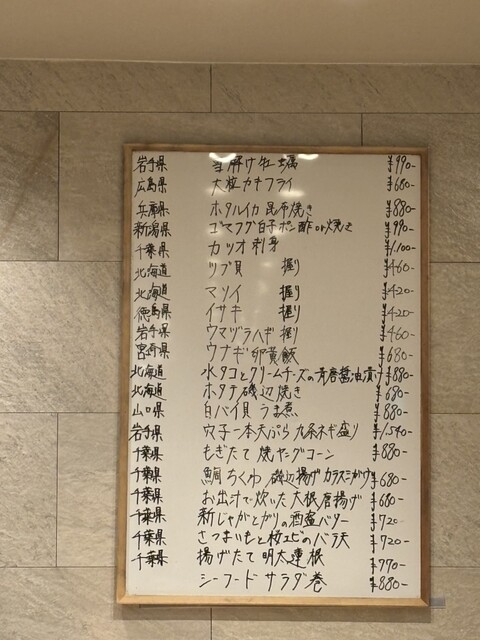 岩手県 雪解け牡蠣 ¥990-
広島県 大粒カキフライ ¥680-
兵庫県 ホタルイカ昆布焼き ¥880-
新潟県 ゴマフグ白子ポン酢or焼き ¥990-
千葉県 カツオ刺身 ¥1,100-
北海道 ツブ貝 握り ¥460-
北海道 マツイ 握り ¥420-
徳島県 イサキ 握り ¥420-
岩手県 ウマヅラハギ 握り ¥460-
宮崎県 ウナギ卵黄飯 ¥680-
北海道 水タコとクリームチーズの青唐醤油漬け ¥880-
北海道 ホタテ磯辺焼き ¥680-
山口県 白バイ貝うま煮 ¥880-
岩手県 穴子一本天ぷら九条ネギ盛り ¥1,540-
千葉県 もぎたて焼ヤングコーン ¥880-
千葉県 鯛ちくわ磯辺揚げカラスミがけ ¥680-
千葉県 お出汁で炊いた大根唐揚げ ¥680-
千葉県 新じゃがとガリの酒盗バター ¥720-
千葉県 さつまいもと桜エビのバラ天 ¥720-
千葉県 揚げたて明太蓮根 ¥770-
シーフードサラダ巻 ¥880-